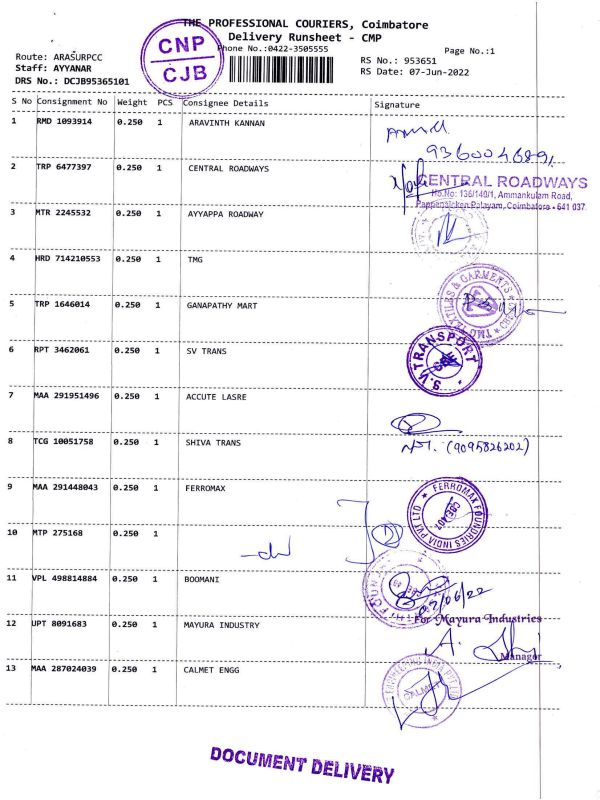 THE PROFESSIONAL COURIERS, Coimbatore
Delivery Runsheet - CMP
Phone No.:0422-3505555
CNP
CJB
Page No.:1
Route: ARASURPCC
Staff: AYYANAR
DRS No.: DCJB95365101
RS No.: 953651
RS Date: 07-Jun-2022
S No Consignment No Weight PCS Consignee Details Signature
1 RMD 1093914 0.250 1 ARAVINTH KANNAN
9360046891
2 TRP 6477397 0.250 1 CENTRAL ROADWAYS
CENTRAL ROADWAYS
No: 136/140/1, Ammankulam Road,
Pappanaicken Palayam, Coimbatore - 641 037.
3 MTR 2245532 0.250 1 AYYAPPA ROADWAY
4 HRD 714210553 0.250 1 TMG
TMG TEXTILES & GARMENTS
5 TRP 1646014 0.250 1 GANAPATHY MART
6 RPT 3462061 0.250 1 SV TRANS
S.V. TRANSPORT
CBE
7 MAA 291951496 0.250 1 ACCUTE LASRE
8 TCG 10051758 0.250 1 SHIVA TRANS
(9095826202)
9 MAA 291448043 0.250 1 FERROMAX
FERROMAX FOUNDRIES INDIA PVT LTD
10 MTP 275168 0.250 1
11 VPL 498814884 0.250 1 BOOMANI
07/06/22
12 UPT 8091683 0.250 1 MAYURA INDUSTRY
For Mayura Industries
Manager
13 MAA 287024039 0.250 1 CALMET ENGG
CALMET
DOCUMENT DELIVERY